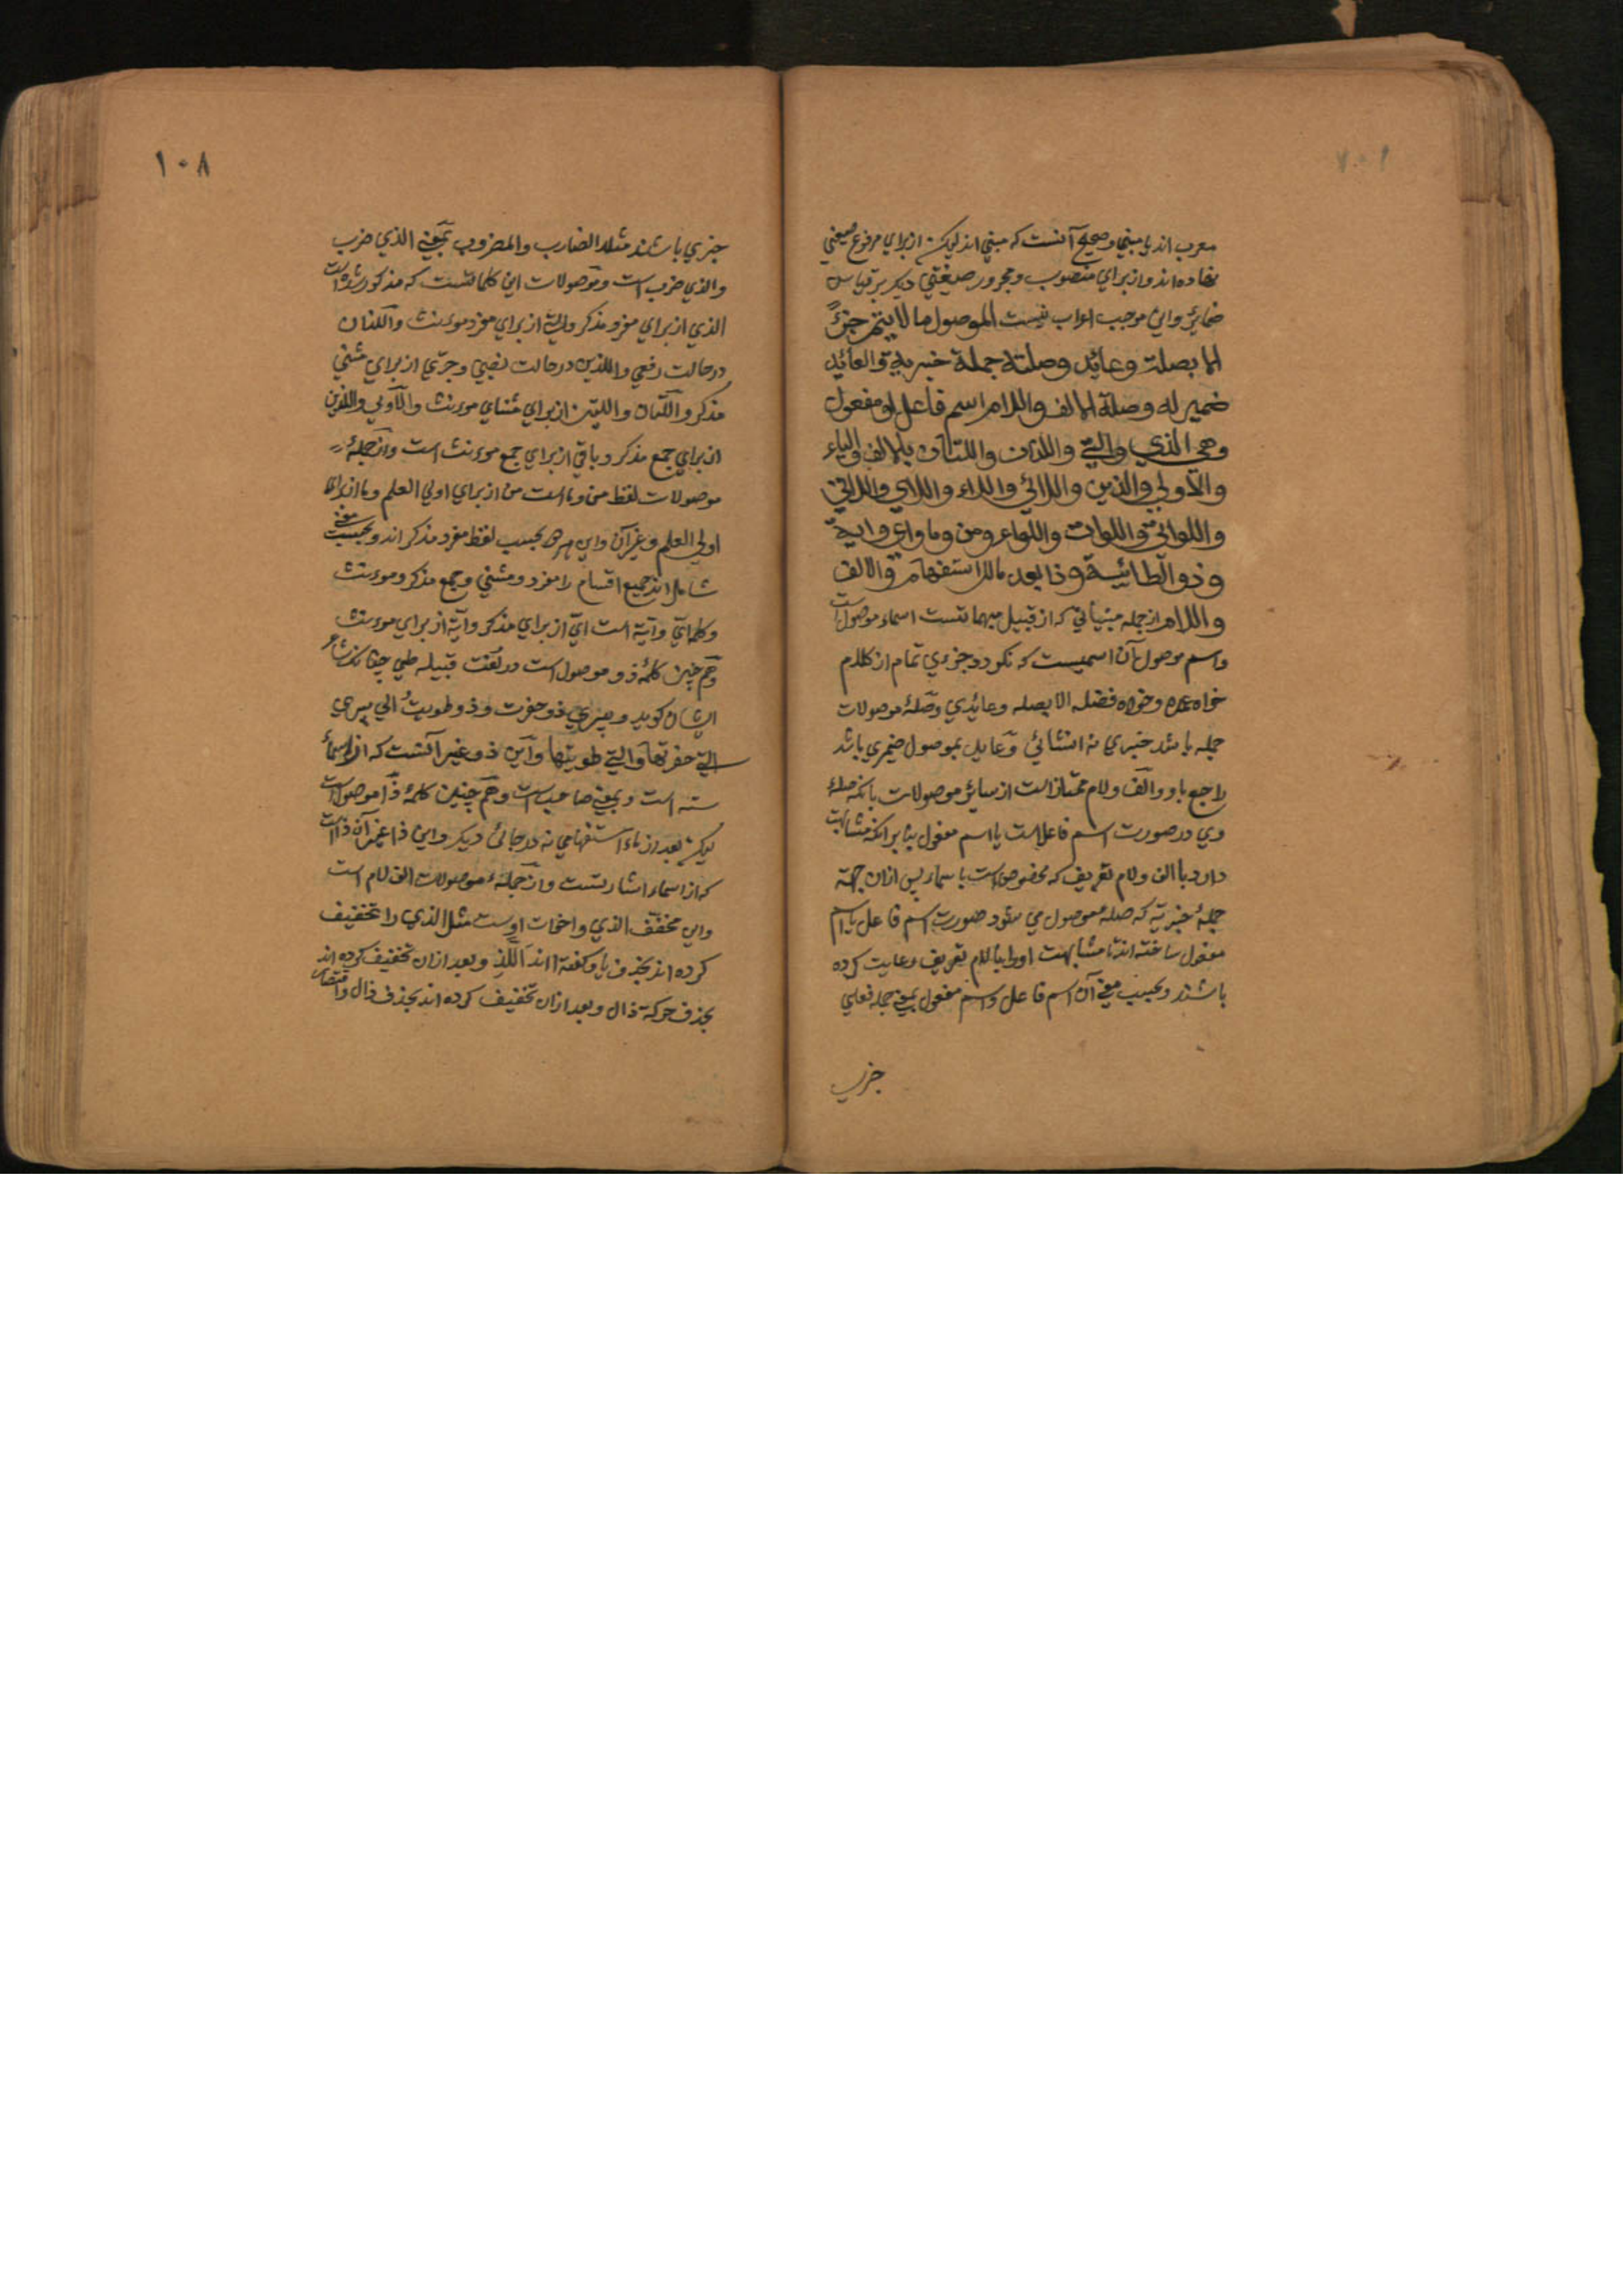 ۱۰۷
معرب اند یا مبنی و صحیح آنست که مبنی اند لیکن از برای مرفوع صیغتی
نهاده اند و از برای منصوب و مجرور صیغتی دیکر بر قیاس
ضمایر و این موجب اعراب نیست الموصول ما لا یتم جزءً
الا بصلة وعائد وصلته جملة خبریة والعائد
ضمیر له وصلة الالف واللام اسم فاعل او مفعول
وهی الذي والتي واللذان واللتان بالالف والیاء
والأولی والذین واللائي واللاء واللاي واللاتي
واللواتي واللات واللواء ومن وما واي وایة
وذو الطائیة وذا بعد ما للاستفهام والالف
واللام از جمله مبنیاتی که از قبیل مبهماتست اسماء موصولات است
واسم موصول آن اسمیست که نکردد جزءی تمام از کلام
خواه عمده و خواه فضله الا بصله و عائدی و صلهٔ موصولات
جمله باشد خبری نه انشائی و عاید بموصول ضمیری باشد
راجع باو و الف و لام ممتاز است از سائر موصولات بانکه صلهٔ
وی در صورت اسم فاعل است یا اسم مفعول بنا بر انکه مشابهت
دارد با الف و لام تعریف که مخصوص است باسما پس ازان جهة
جملهٔ خبریه که صلهٔ موصول می شود صورت اسم فاعل یا اسم
مفعول ساخته اند تا مشابهت او را با لام تعریف رعایت کرده
باشند و بحسب معنی آن اسم فاعل و اسم مفعول بمعنی جمله فعلی
خبری
۱۰۸
خبری باشند مثلا الضارب والمضروب بمعنی الذي ضرب
والذي ضرب است و موصولات این کلماتست که مذکور شده است
الذي از برای مفرد مذکر والتي از برای مفرد مونث واللذان
در حالت رفعی واللذین در حالت نصبی و جری از برای مثنی
مذکر واللتان واللتین از برای مثنای مونث والأولی والذین
از برای جمع مذکر و باقی از برای جمع مونث است و از جملهٔ
موصولات لفظ من و ما است من از برای اولی العلم و ما از برای
اولی العلم و غیر آن و این هر دو بحسب لفظ مفرد مذکر اند و بحسب معنی
شامل اند جمیع اقسام را مفرد و مثنی و جمع مذکر و مونث
و کلمه ایّ و ایّة است ایّ از برای مذکر و ایّة از برای مونث
و هم چنین کلمهٔ ذو موصول است در لغت قبیله طی چنانکه شاعر
ایشان کوید و بیري ذو حفرت و ذو طویت ای بیري
التي حفرتها والتي طویتها و این ذو غیر آنست که از اسماء
سته است و بمعنی صاحب است و هم چنین کلمهٔ ذا موصول است
لیکن بعد از ماء استفهامی نه در جائی دیکر و این ذا غیر آن ذا است
که از اسماء اشارتست و از جملهٔ موصولات الف لام است
و این مخفف الذي و اخوات اوست مثل الذي را تخفیف
کرده اند بحذف یا و کفته اند اللذ و بعد ازان تخفیف کرده اند
بحذف حرکة ذال و بعد ازان تخفیف کرده اند بحذف ذال و اقتصار